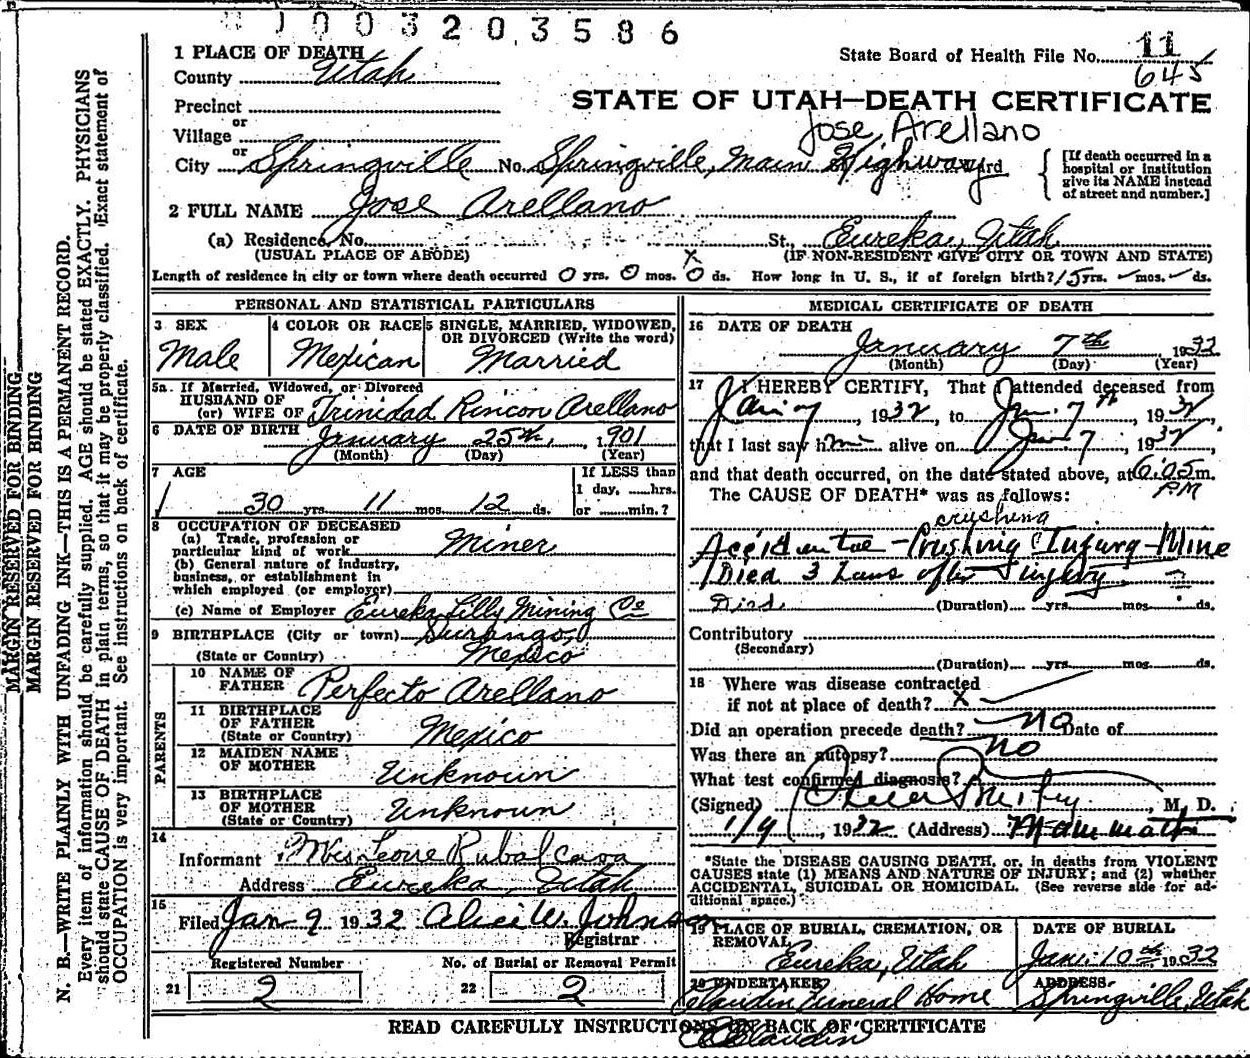 1003203586
1 PLACE OF DEATH
County Utah
State Board of Health File No. 11
645
Precinct
or
STATE OF UTAH—DEATH CERTIFICATE
Village
Jose, Arellano
or
City Springville No. Springville, Main Highway
[If death occurred in a hospital or institution give its NAME instead of street and number.]
2 FULL NAME Jose Arellano
(a) Residence, No. St., Eureka, Utah
(USUAL PLACE OF ABODE) (IF NON-RESIDENT GIVE CITY OR TOWN AND STATE)
Length of residence in city or town where death occurred 0 yrs. 0 mos. 0 ds. How long in U. S., if of foreign birth? 15 yrs. — mos. — ds.
PERSONAL AND STATISTICAL PARTICULARS
3 SEX
Male
4 COLOR OR RACE
Mexican
5 SINGLE, MARRIED, WIDOWED, OR DIVORCED (Write the word)
Married
5a. If Married, Widowed, or Divorced
HUSBAND OF
(or) WIFE OF Trinidad Rincon Arellano
6 DATE OF BIRTH January 25th, 1901
(Month) (Day) (Year)
7 AGE
30 yrs. 11 mos. 12 ds.
If LESS than
1 day, ....hrs.
or ......min.?
8 OCCUPATION OF DECEASED
(a) Trade, profession or particular kind of work Miner
(b) General nature of industry, business, or establishment in which employed (or employer)
(c) Name of Employer Eureka Lilly Mining Co
9 BIRTHPLACE (City or town) Durango,
(State or Country) Mexico
PARENTS
10 NAME OF FATHER Perfecto Arellano
11 BIRTHPLACE OF FATHER (State or Country) Mexico
12 MAIDEN NAME OF MOTHER Unknown
13 BIRTHPLACE OF MOTHER (State or Country) Unknown
14
Informant Mrs Leone Rubalcava
Address Eureka, Utah
15
Filed Jan 9 1932 Alice W. Johnson
Registrar
Registered Number
21 2
No. of Burial or Removal Permit
22 2
MEDICAL CERTIFICATE OF DEATH
16 DATE OF DEATH
January 7th 1932
(Month) (Day) (Year)
17 I HEREBY CERTIFY, That I attended deceased from
Jan 7, 1932, to Jan. 7th, 1932,
that I last saw him alive on Jan 7, 1932,
and that death occurred, on the date stated above, at 6:05 m.
PM
The CAUSE OF DEATH* was as follows:
crushing
Accidental - Crushing Injury - Mine
Died 3 hours after Injury.
Died. (Duration).... yrs. mos. ds.
Contributory
(Secondary)
(Duration).... yrs. mos. ds.
18 Where was disease contracted
if not at place of death? X
Did an operation precede death? no Date of
Was there an autopsy? no
What test confirmed diagnosis?
(Signed) , M. D.
1/9, 1932 (Address) Mammoth
*State the DISEASE CAUSING DEATH, or, in deaths from VIOLENT CAUSES state (1) MEANS AND NATURE OF INJURY; and (2) whether ACCIDENTAL, SUICIDAL OR HOMICIDAL. (See reverse side for additional space.)
19 PLACE OF BURIAL, CREMATION, OR REMOVAL
Eureka, Utah
DATE OF BURIAL
Jan. 10th, 1932
20 UNDERTAKER
Claudin Funeral Home
ADDRESS
Springville, Utah
READ CAREFULLY INSTRUCTIONS ON BACK OF CERTIFICATE
Claudin
MARGIN RESERVED FOR BINDING
MARGIN RESERVED FOR BINDING
N. B.—WRITE PLAINLY WITH UNFADING INK—THIS IS A PERMANENT RECORD.
Every item of information should be carefully supplied. AGE should be stated EXACTLY. PHYSICIANS
should state CAUSE OF DEATH in plain terms, so that it may be properly classified. Exact statement of
OCCUPATION is very important. See instructions on back of certificate.